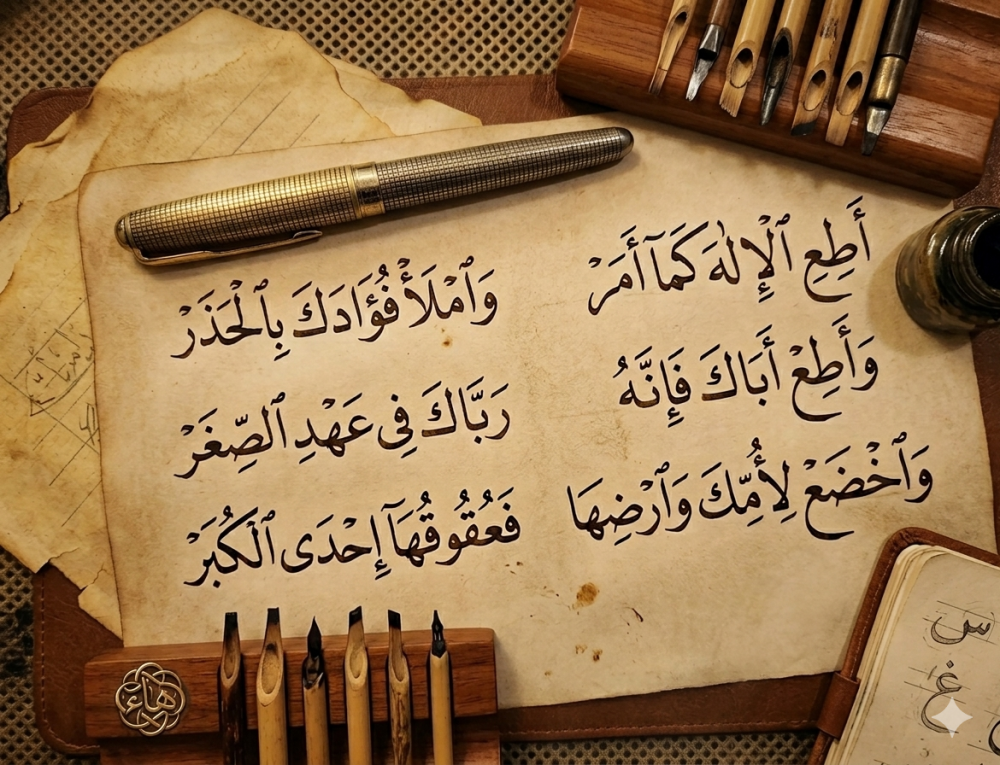 أَطِعِ ٱلْإِلٰهَ كَمَآ أَمَرْ وَٱمْلَأْ فُؤَادَكَ بِٱلْحَذَرْ
وَأَطِعْ أَبَاكَ فَإِنَّهُ رَبَّاكَ فِى عَهْدِ ٱلصِّغَرْ
وَٱخْضَعْ لِأُمِّكَ وَٱرْضِهَا فَعُقُوقُهَآ إِحْدَى ٱلْكُبَرْ
هاء
س
غ